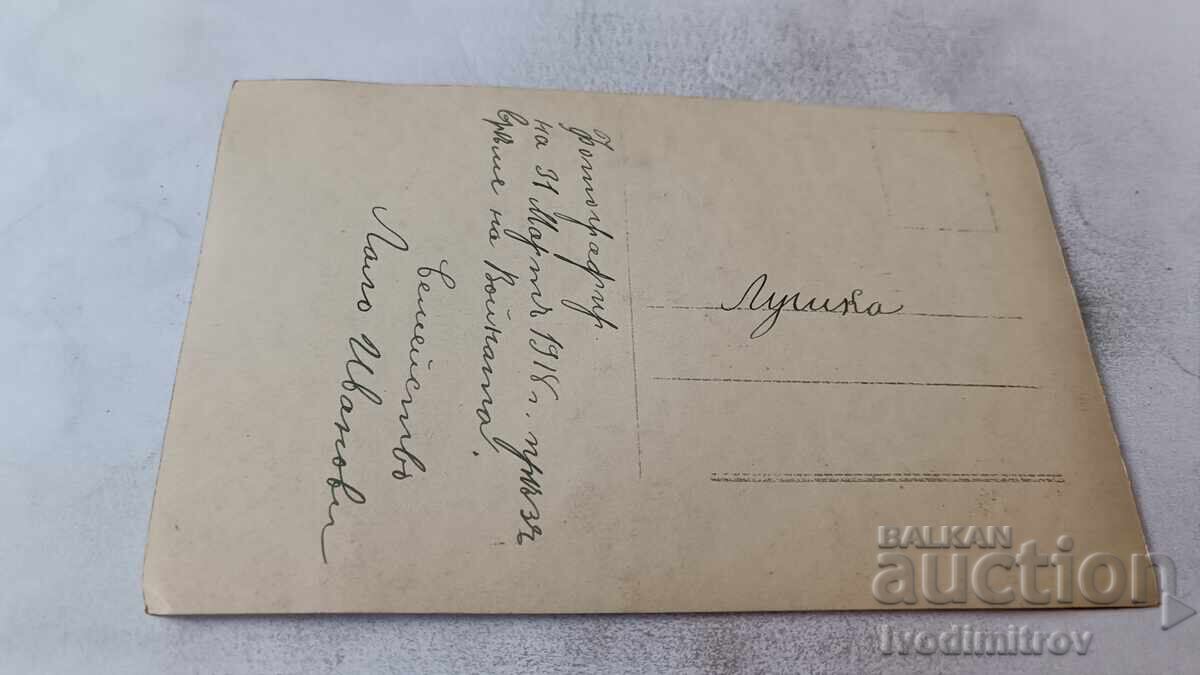 Фотографир.
на 31 Мартъ 1918 г. прѣзъ
врѣме на Войната.
Семейство
Лало Иванови
Лучика
BALKAN
auction
Ivodimitrov